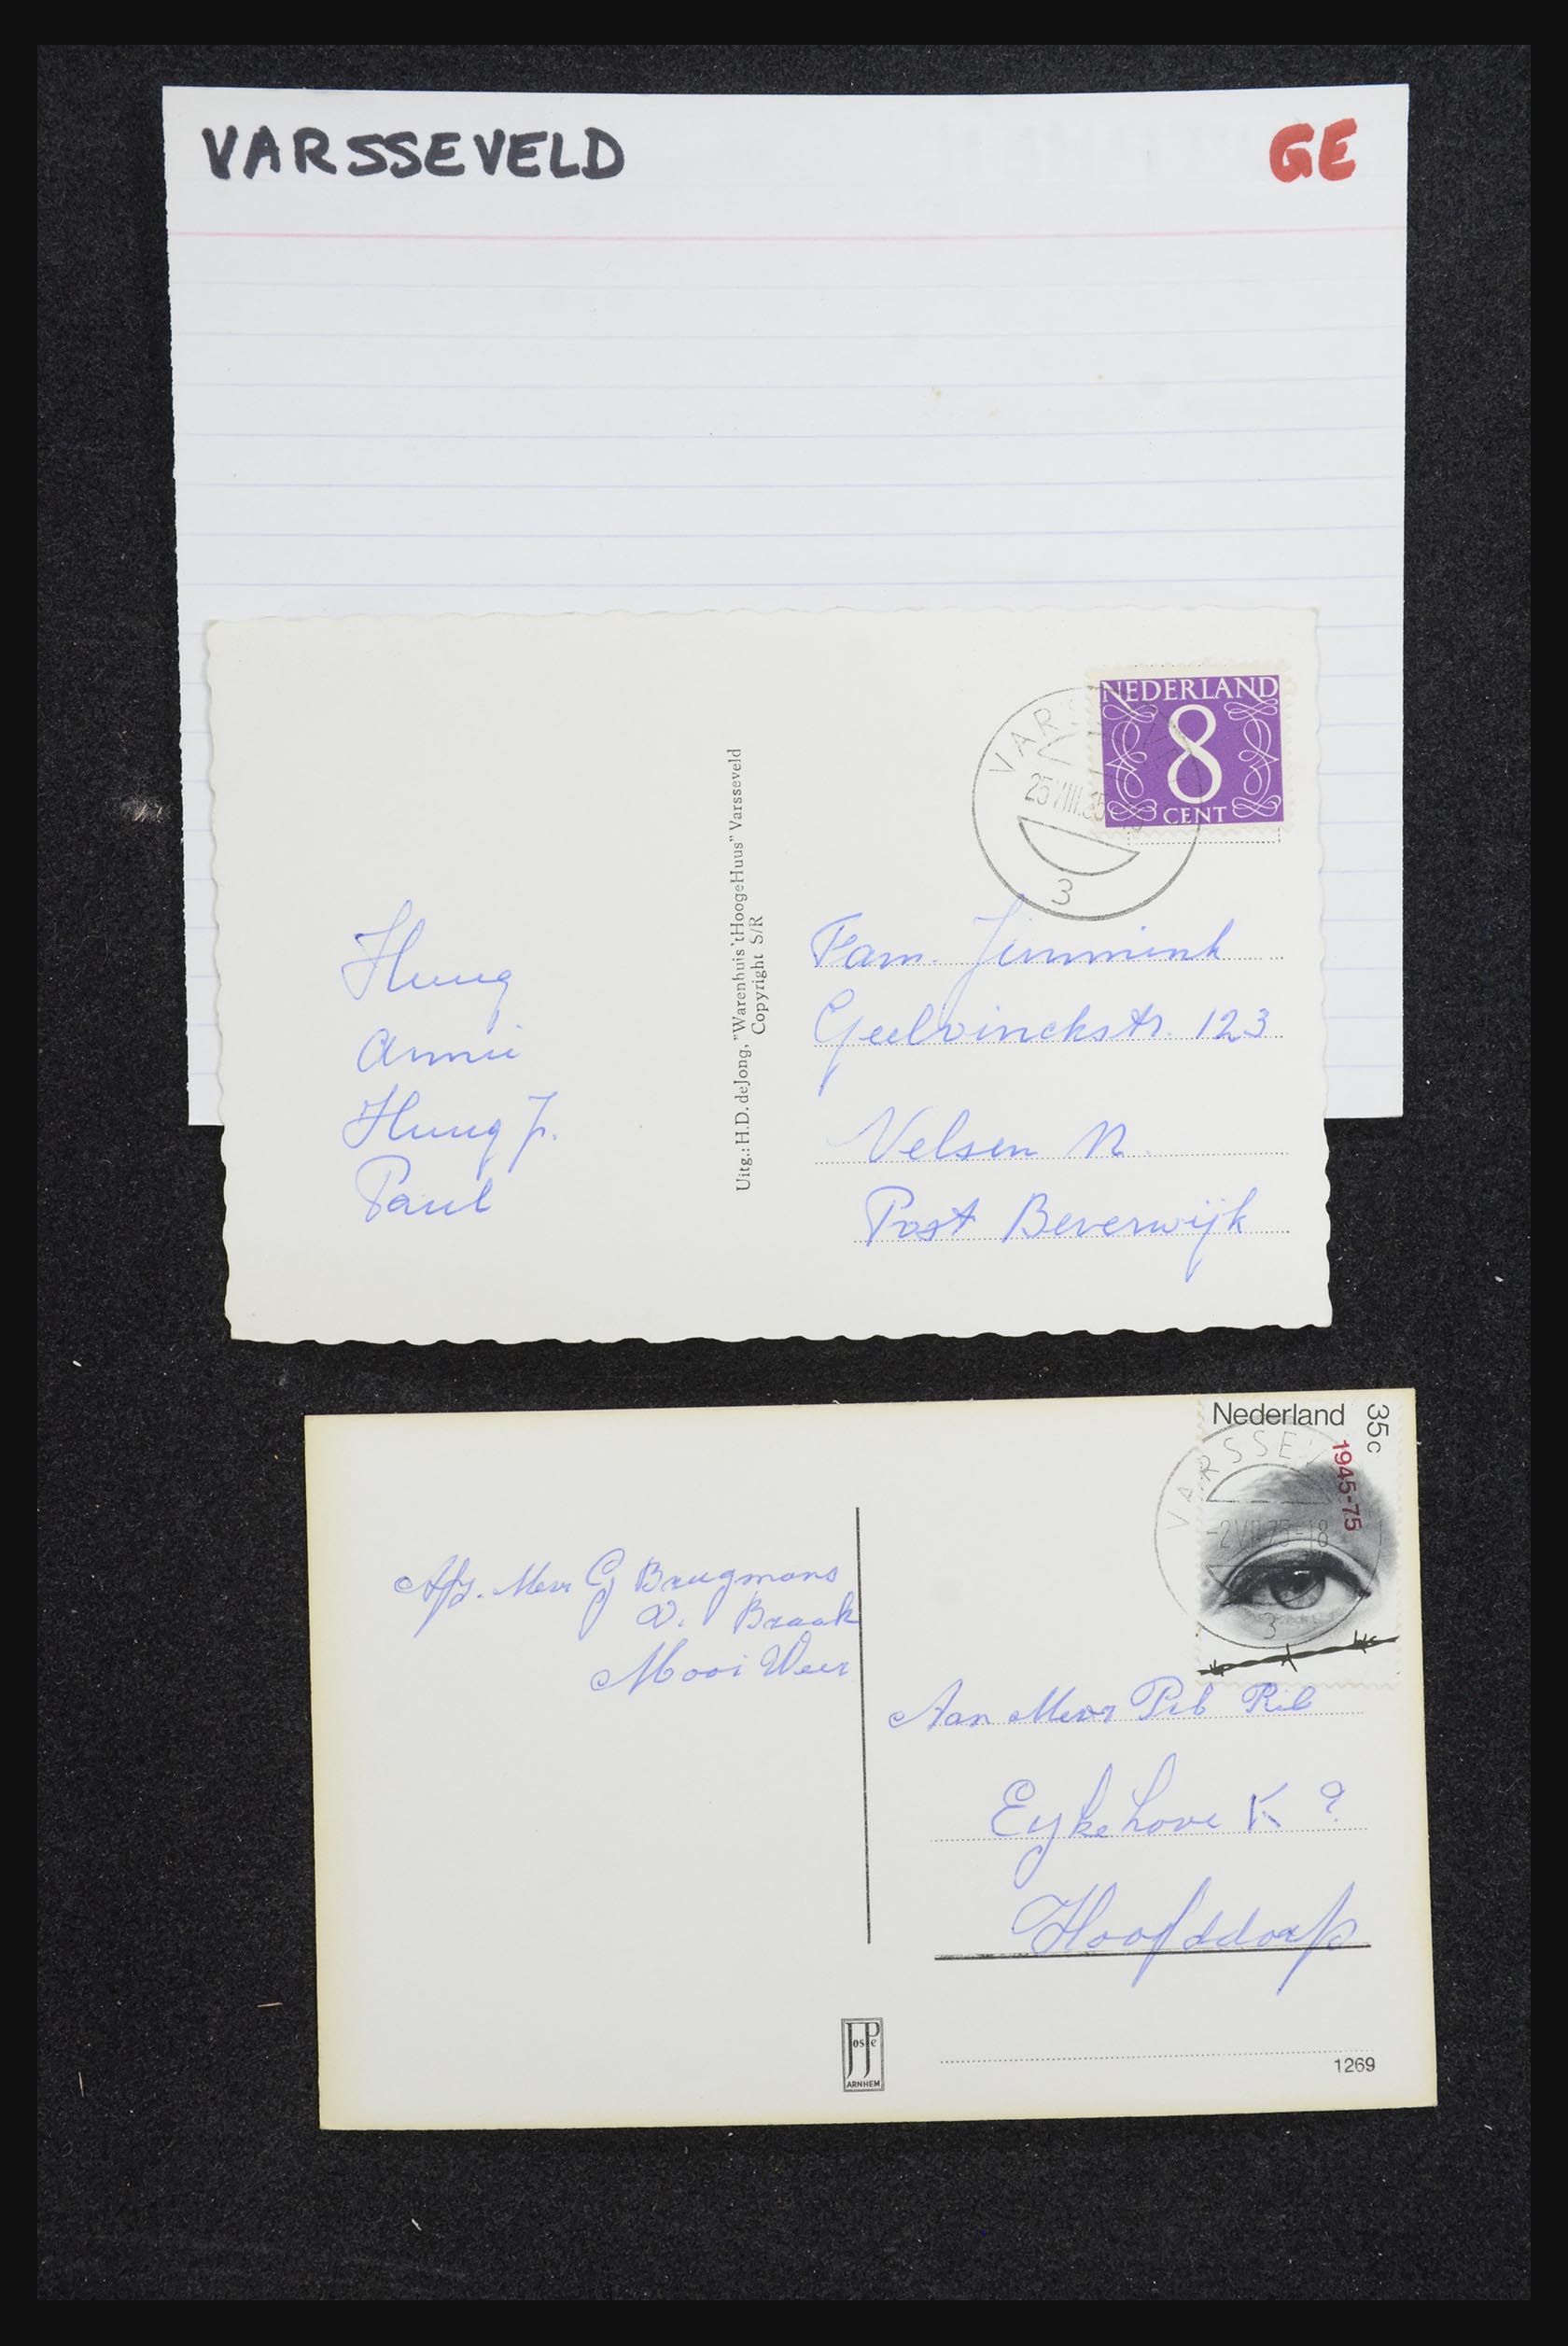 VARSSEVELD
GE
NEDERLAND
8
CENT
VARS
25 VIII.65
3
Uitg.: H.D. de Jong, "Warenhuis 't Hooge Huus" Varsseveld
Copyright S/R
Annie
Paul
Fam. Jimmink
Geelvinckstr. 123
Velsen N.
Post Beverwijk
Nederland
35c
1945-75
VARSSEV
-2 VII 75-18
3
Afz. Mevr G Brugmans
v. Braak
Mooi Weer
Aan Mevr
Eykehove K ?
Hoofddorp
JosPe
ARNHEM
1269